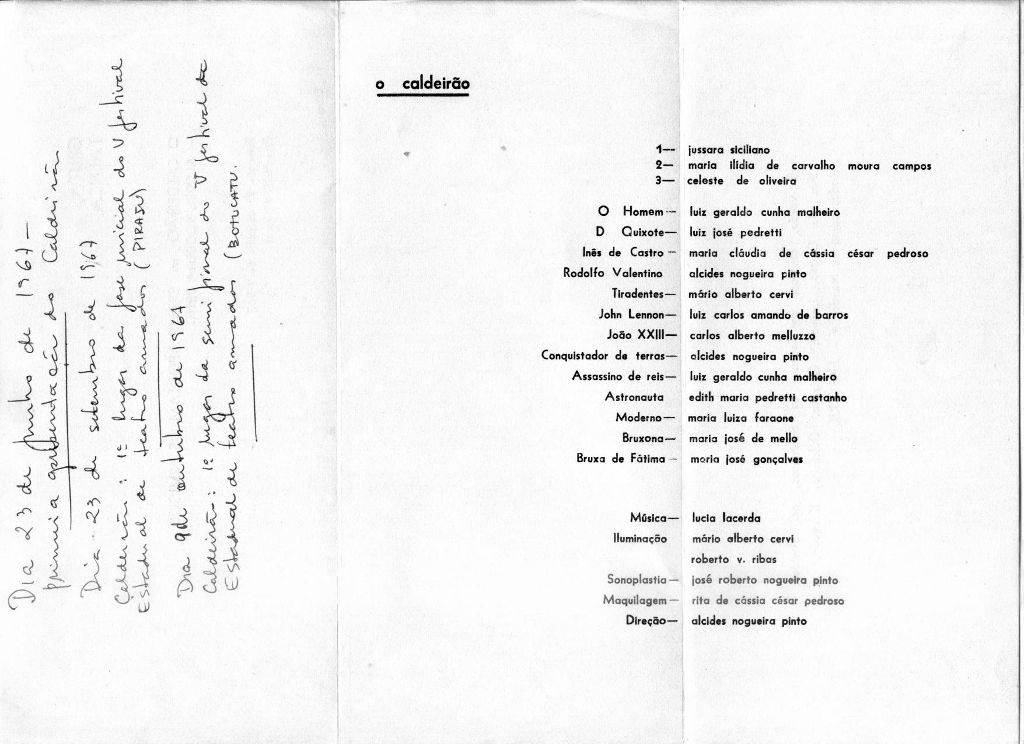 Dia 23 de junho de 1967 —
primeira apresentação do Caldeirão
Dia 23 de setembro de 1967
Caldeirão: 1º lugar da fase inicial do V festival
Estadual de teatro amador (PIRAJU)
Dia 9 de outubro de 1967
Caldeirão: 1º lugar da semi final do V festival de
Estadual de teatro amador (BOTUCATU.
o caldeirão
1— jussara siciliano
2— maria ilídia de carvalho moura campos
3— celeste de oliveira
O Homem— luiz geraldo cunha malheiro
D Quixote— luiz josé pedretti
Inês de Castro — maria cláudia de cássia césar pedroso
Rodolfo Valentino alcides nogueira pinto
Tiradentes— mário alberto cervi
John Lennon— luiz carlos amando de barros
João XXIII— carlos alberto melluzzo
Conquistador de terras— alcides nogueira pinto
Assassino de reis— luiz geraldo cunha malheiro
Astronauta edith maria pedretti castanho
Moderno— maria luiza faraone
Bruxona— maria josé de mello
Bruxa de Fátima — maria josé gonçalves
Música— lucia lacerda
Iluminação mário alberto cervi
roberto v. ribas
Sonoplastia— josé roberto nogueira pinto
Maquilagem— rita de cássia césar pedroso
Direção— alcides nogueira pinto